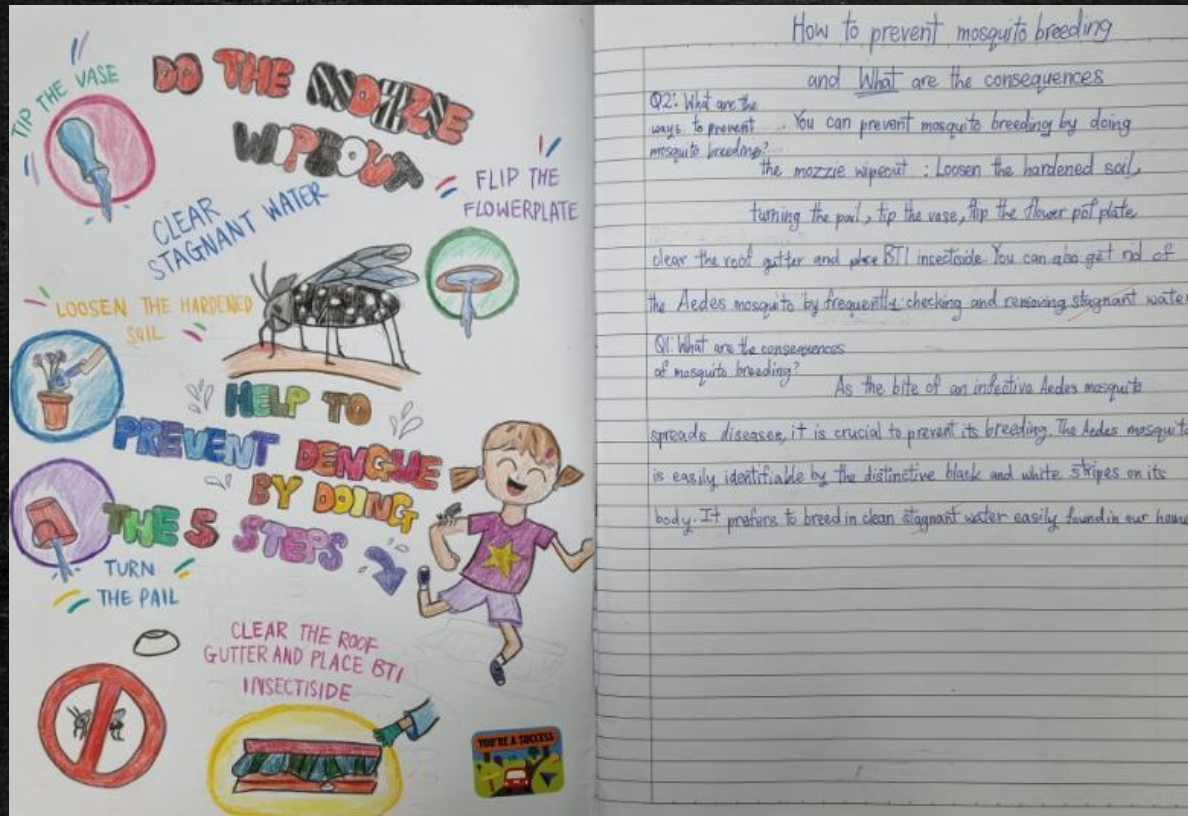 TIP THE VASE
DO THE MOZZIE
WIPEOUT
CLEAR
STAGNANT WATER
FLIP THE
FLOWERPLATE
LOOSEN THE HARDENED
SOIL
HELP TO
PREVENT DENGUE
BY DOING
THE 5 STEPS
TURN
THE PAIL
CLEAR THE ROOF
GUTTER AND PLACE BTI
INSECTISIDE
YOU'RE A SUCCESS
How to prevent mosquito breeding
and What are the consequences
Q2: What are the
ways to prevent
mosquito breeding?
You can prevent mosquito breeding by doing
the mozzie wipeout : Loosen the hardened soil,
turning the pail, tip the vase, flip the flower pot plate
clear the roof gutter and place BTI insecticide. You can also get rid of
the Aedes mosquito by frequently checking and removing stagnant water
Q1: What are the consequences
of mosquito breeding?
As the bite of an infective Aedes mosquito
spreads diseases, it is crucial to prevent its breeding. The Aedes mosquito
is easily identifiable by the distinctive black and white stripes on its
body. It prefers to breed in clean stagnant water easily found in our home